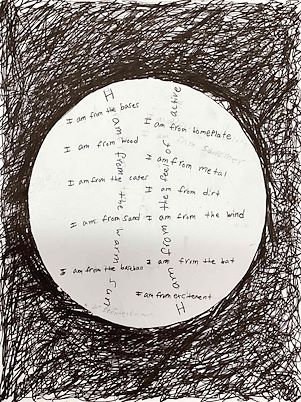 I am from the bases
I am from wood
I am from the
I am from sand
I am from the baseball
I am from the warm sun
I am from homeplate
I am from metal
I am from dirt
I am from the wind
I am from the bat
I am from excitement
I am from the feel of active